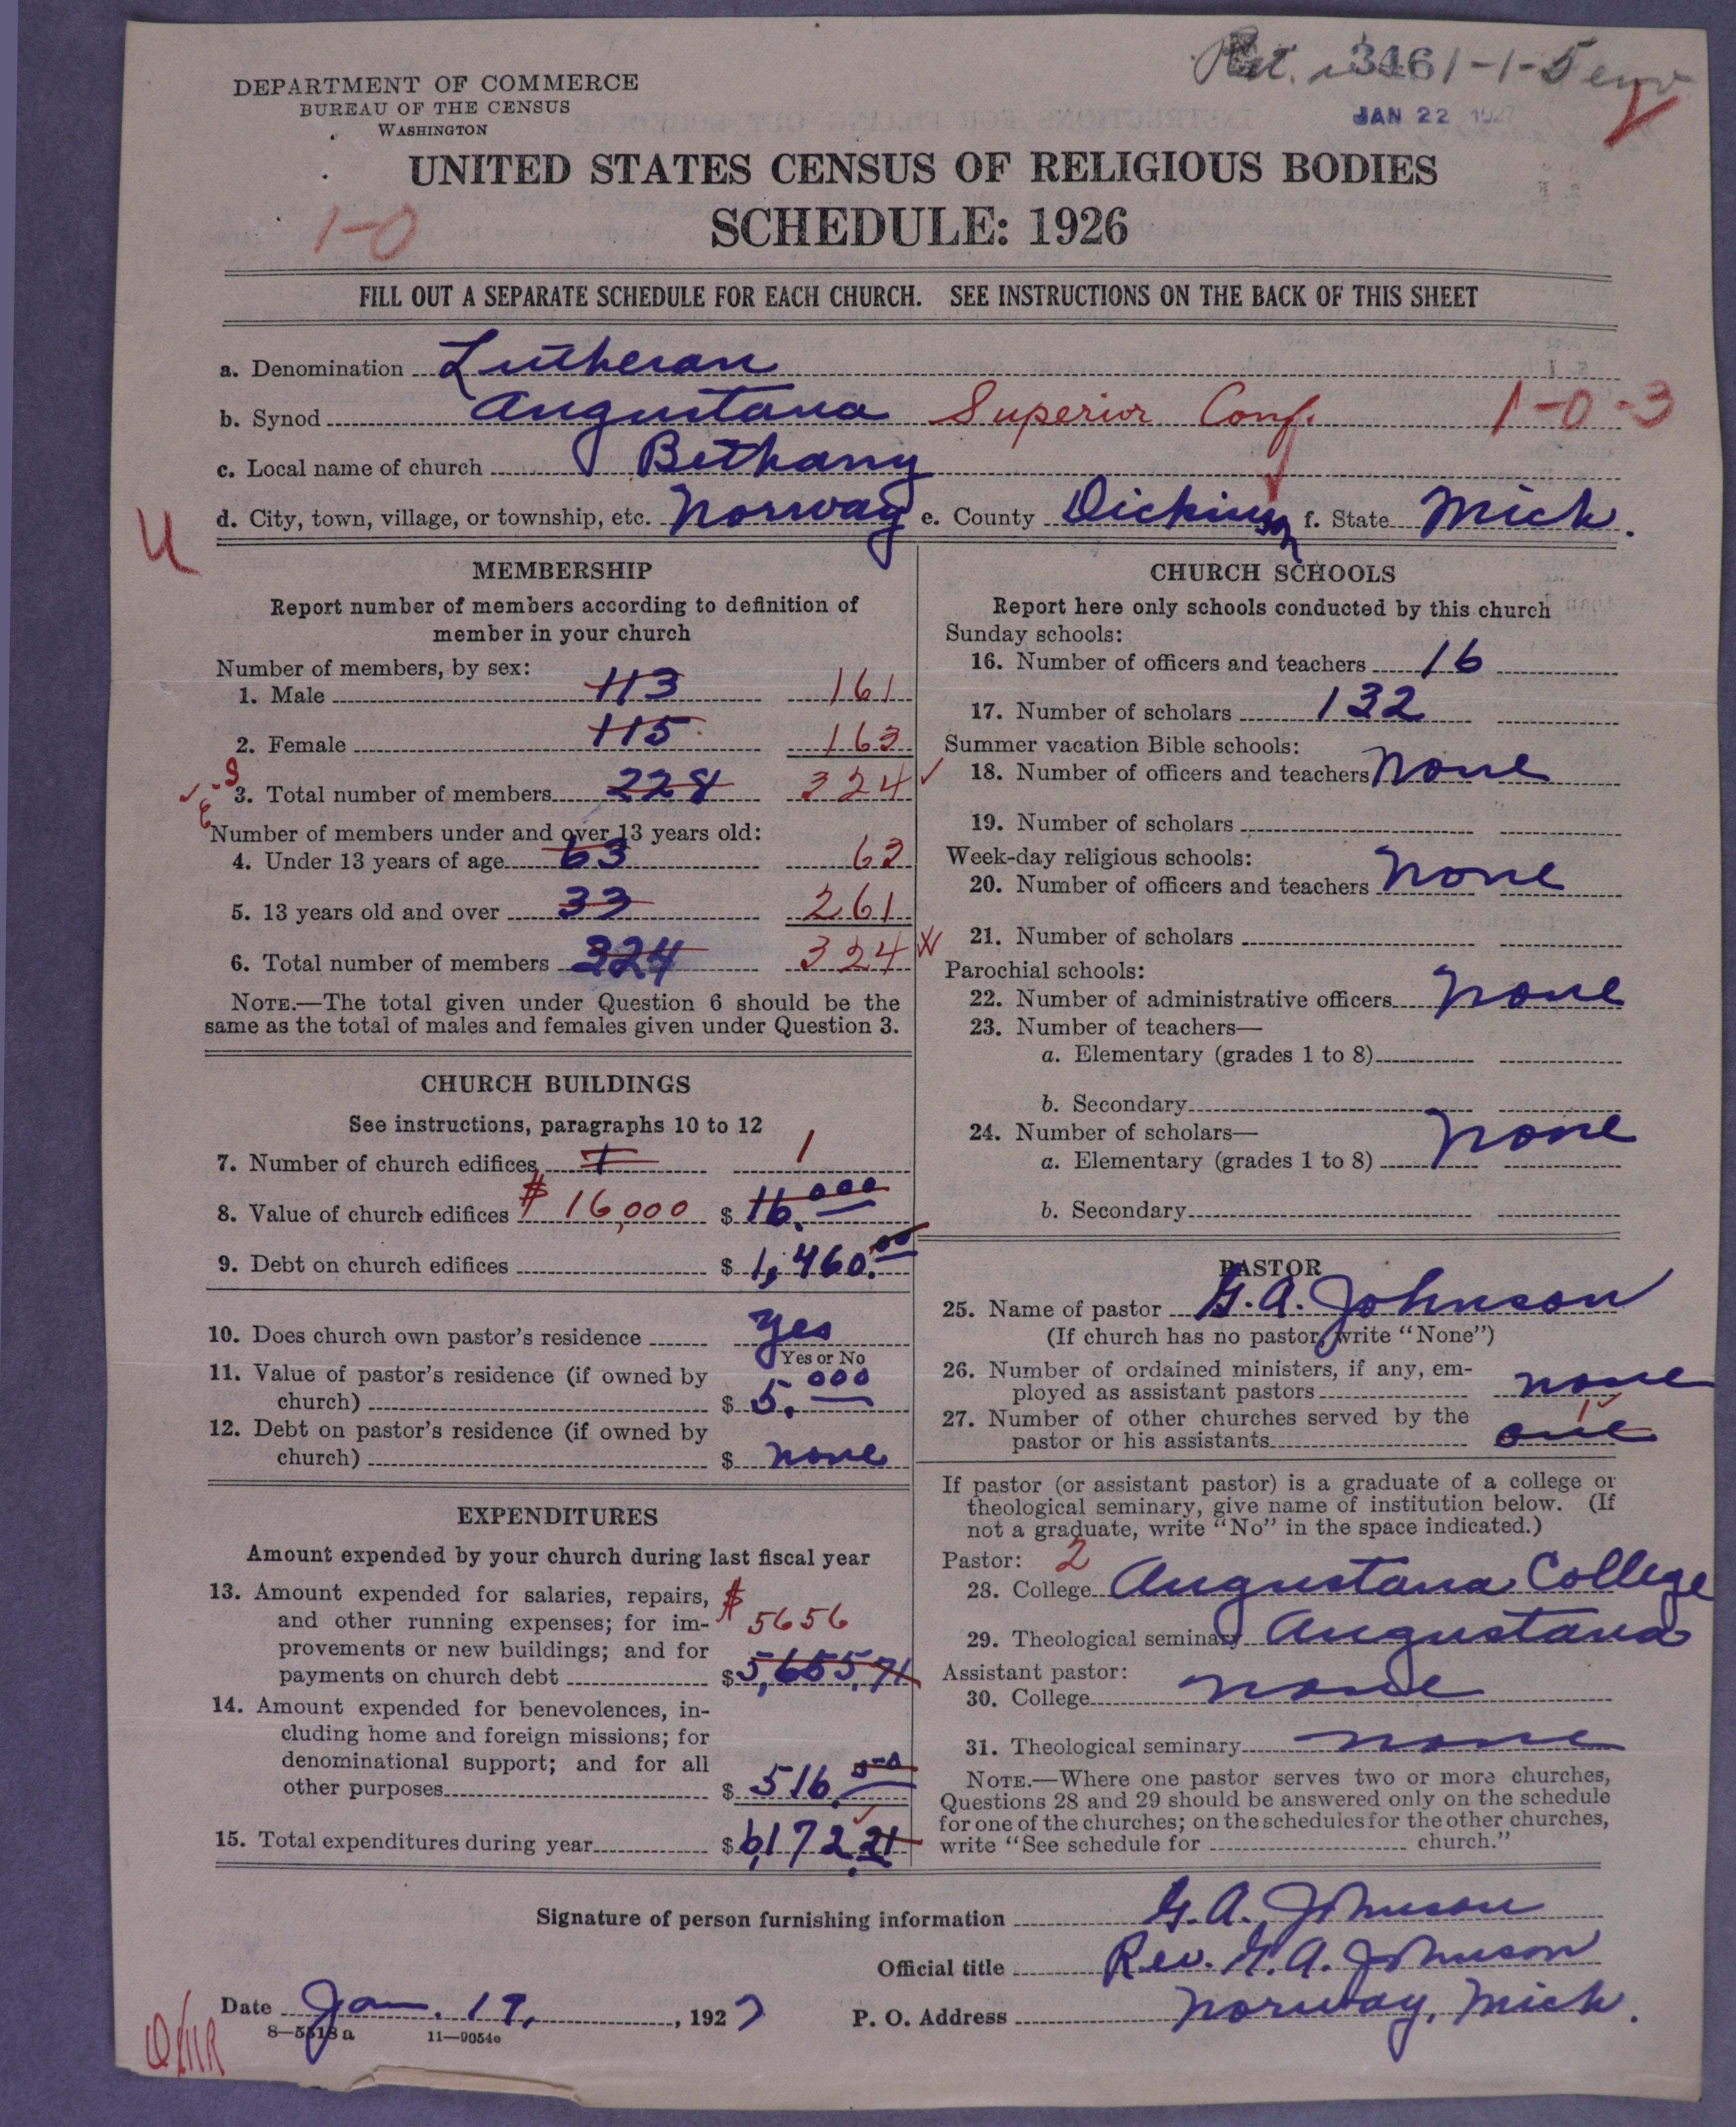 3461-1-5
JAN 22 1927
DEPARTMENT OF COMMERCE
BUREAU OF THE CENSUS
WASHINGTON
UNITED STATES CENSUS OF RELIGIOUS BODIES
SCHEDULE: 1926
1-0
FILL OUT A SEPARATE SCHEDULE FOR EACH CHURCH. SEE INSTRUCTIONS ON THE BACK OF THIS SHEET
a. Denomination Lutheran
b. Synod Augustana Superior Conf. 1-0-3
c. Local name of church Bethany
d. City, town, village, or township, etc. Norway e. County Dickinson f. State Mich.
U
MEMBERSHIP
Report number of members according to definition of
member in your church
Number of members, by sex:
1. Male 113 161
2. Female 115 163
3. Total number of members 228 324
Number of members under and over 13 years old:
4. Under 13 years of age 63 63
5. 13 years old and over 33 261
6. Total number of members 324 324
NOTE.—The total given under Question 6 should be the
same as the total of males and females given under Question 3.
CHURCH BUILDINGS
See instructions, paragraphs 10 to 12
7. Number of church edifices 1 1
8. Value of church edifices $16,000 $ 16.000
9. Debt on church edifices $ 1,460.00
10. Does church own pastor's residence yes
Yes or No
11. Value of pastor's residence (if owned by
church) $ 5.000
12. Debt on pastor's residence (if owned by
church) $ none
EXPENDITURES
Amount expended by your church during last fiscal year
13. Amount expended for salaries, repairs,
and other running expenses; for im- $ 5656
provements or new buildings; and for
payments on church debt $ 5,655.71
14. Amount expended for benevolences, in-
cluding home and foreign missions; for
denominational support; and for all
other purposes $ 516.50
15. Total expenditures during year $ 6,172.21
CHURCH SCHOOLS
Report here only schools conducted by this church
Sunday schools:
16. Number of officers and teachers 16
17. Number of scholars 132
Summer vacation Bible schools:
18. Number of officers and teachers None
19. Number of scholars
Week-day religious schools:
20. Number of officers and teachers None
21. Number of scholars
Parochial schools:
22. Number of administrative officers None
23. Number of teachers—
a. Elementary (grades 1 to 8)
b. Secondary
24. Number of scholars— None
a. Elementary (grades 1 to 8)
b. Secondary
PASTOR
25. Name of pastor G. A. Johnson
(If church has no pastor, write "None")
26. Number of ordained ministers, if any, em-
ployed as assistant pastors none
27. Number of other churches served by the 1
pastor or his assistants one
If pastor (or assistant pastor) is a graduate of a college or
theological seminary, give name of institution below. (If
not a graduate, write "No" in the space indicated.)
Pastor: 2
28. College Augustana College
29. Theological seminary Augustana
Assistant pastor:
30. College none
31. Theological seminary none
NOTE.—Where one pastor serves two or more churches,
Questions 28 and 29 should be answered only on the schedule
for one of the churches; on the schedules for the other churches,
write "See schedule for church."
Signature of person furnishing information G. A. Johnson
Official title Rev. G. A. Johnson
Date Jan. 19, 1927 P. O. Address Norway, Mich.
8—5518a 11—9054e